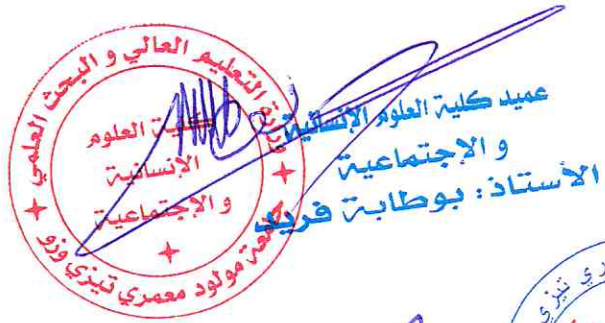 وزارة التعليم العالي و البحث العلمي
كلية العلوم
الإنسانية
و الإجتماعية
جامعة مولود معمري تيزي وزو
عميد كلية العلوم الإنسانية
و الإجتماعية
الأستاذ: بوطابة فريد
ري تيزي